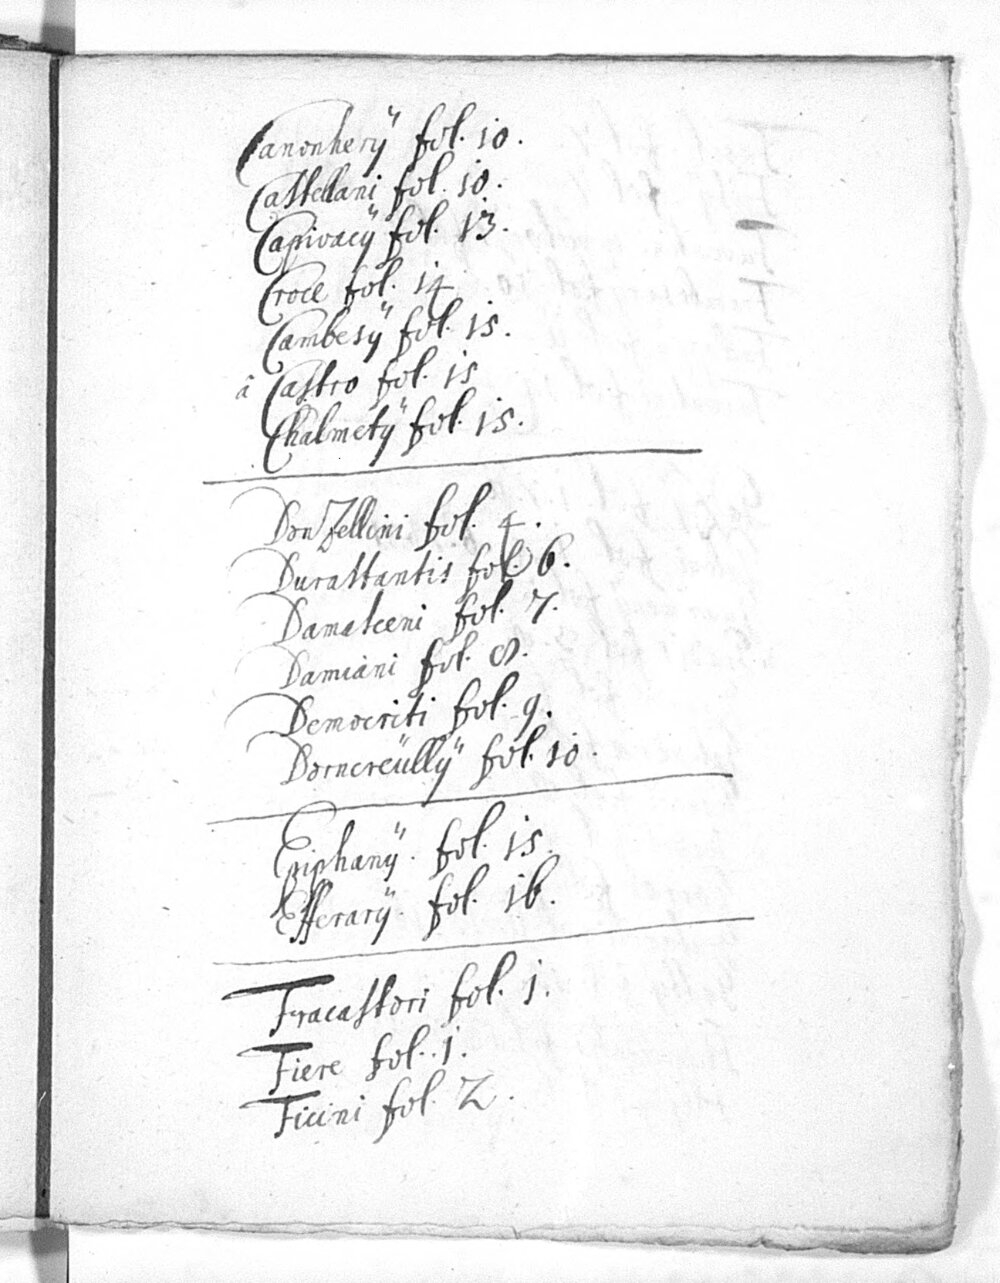 Canonherÿ fol. 10.
Castellani fol. 10.
Capivacÿ fol. 13.
Croce fol. 14
Cambesÿ fol. 15.
â Castro fol. 15
Chalmetÿ fol. 15.
Donzellini fol. 4.
Durastantis fol. 6.
Damasceni fol. 7.
Damiani fol. 8.
Democriti fol. 9.
Dorncreüllÿ fol. 10.
Epiphanÿ. fol. 15.
Efferarÿ. fol. 16.
Fracastori fol. 1.
Fiere fol. 1.
Ficini fol. 2.